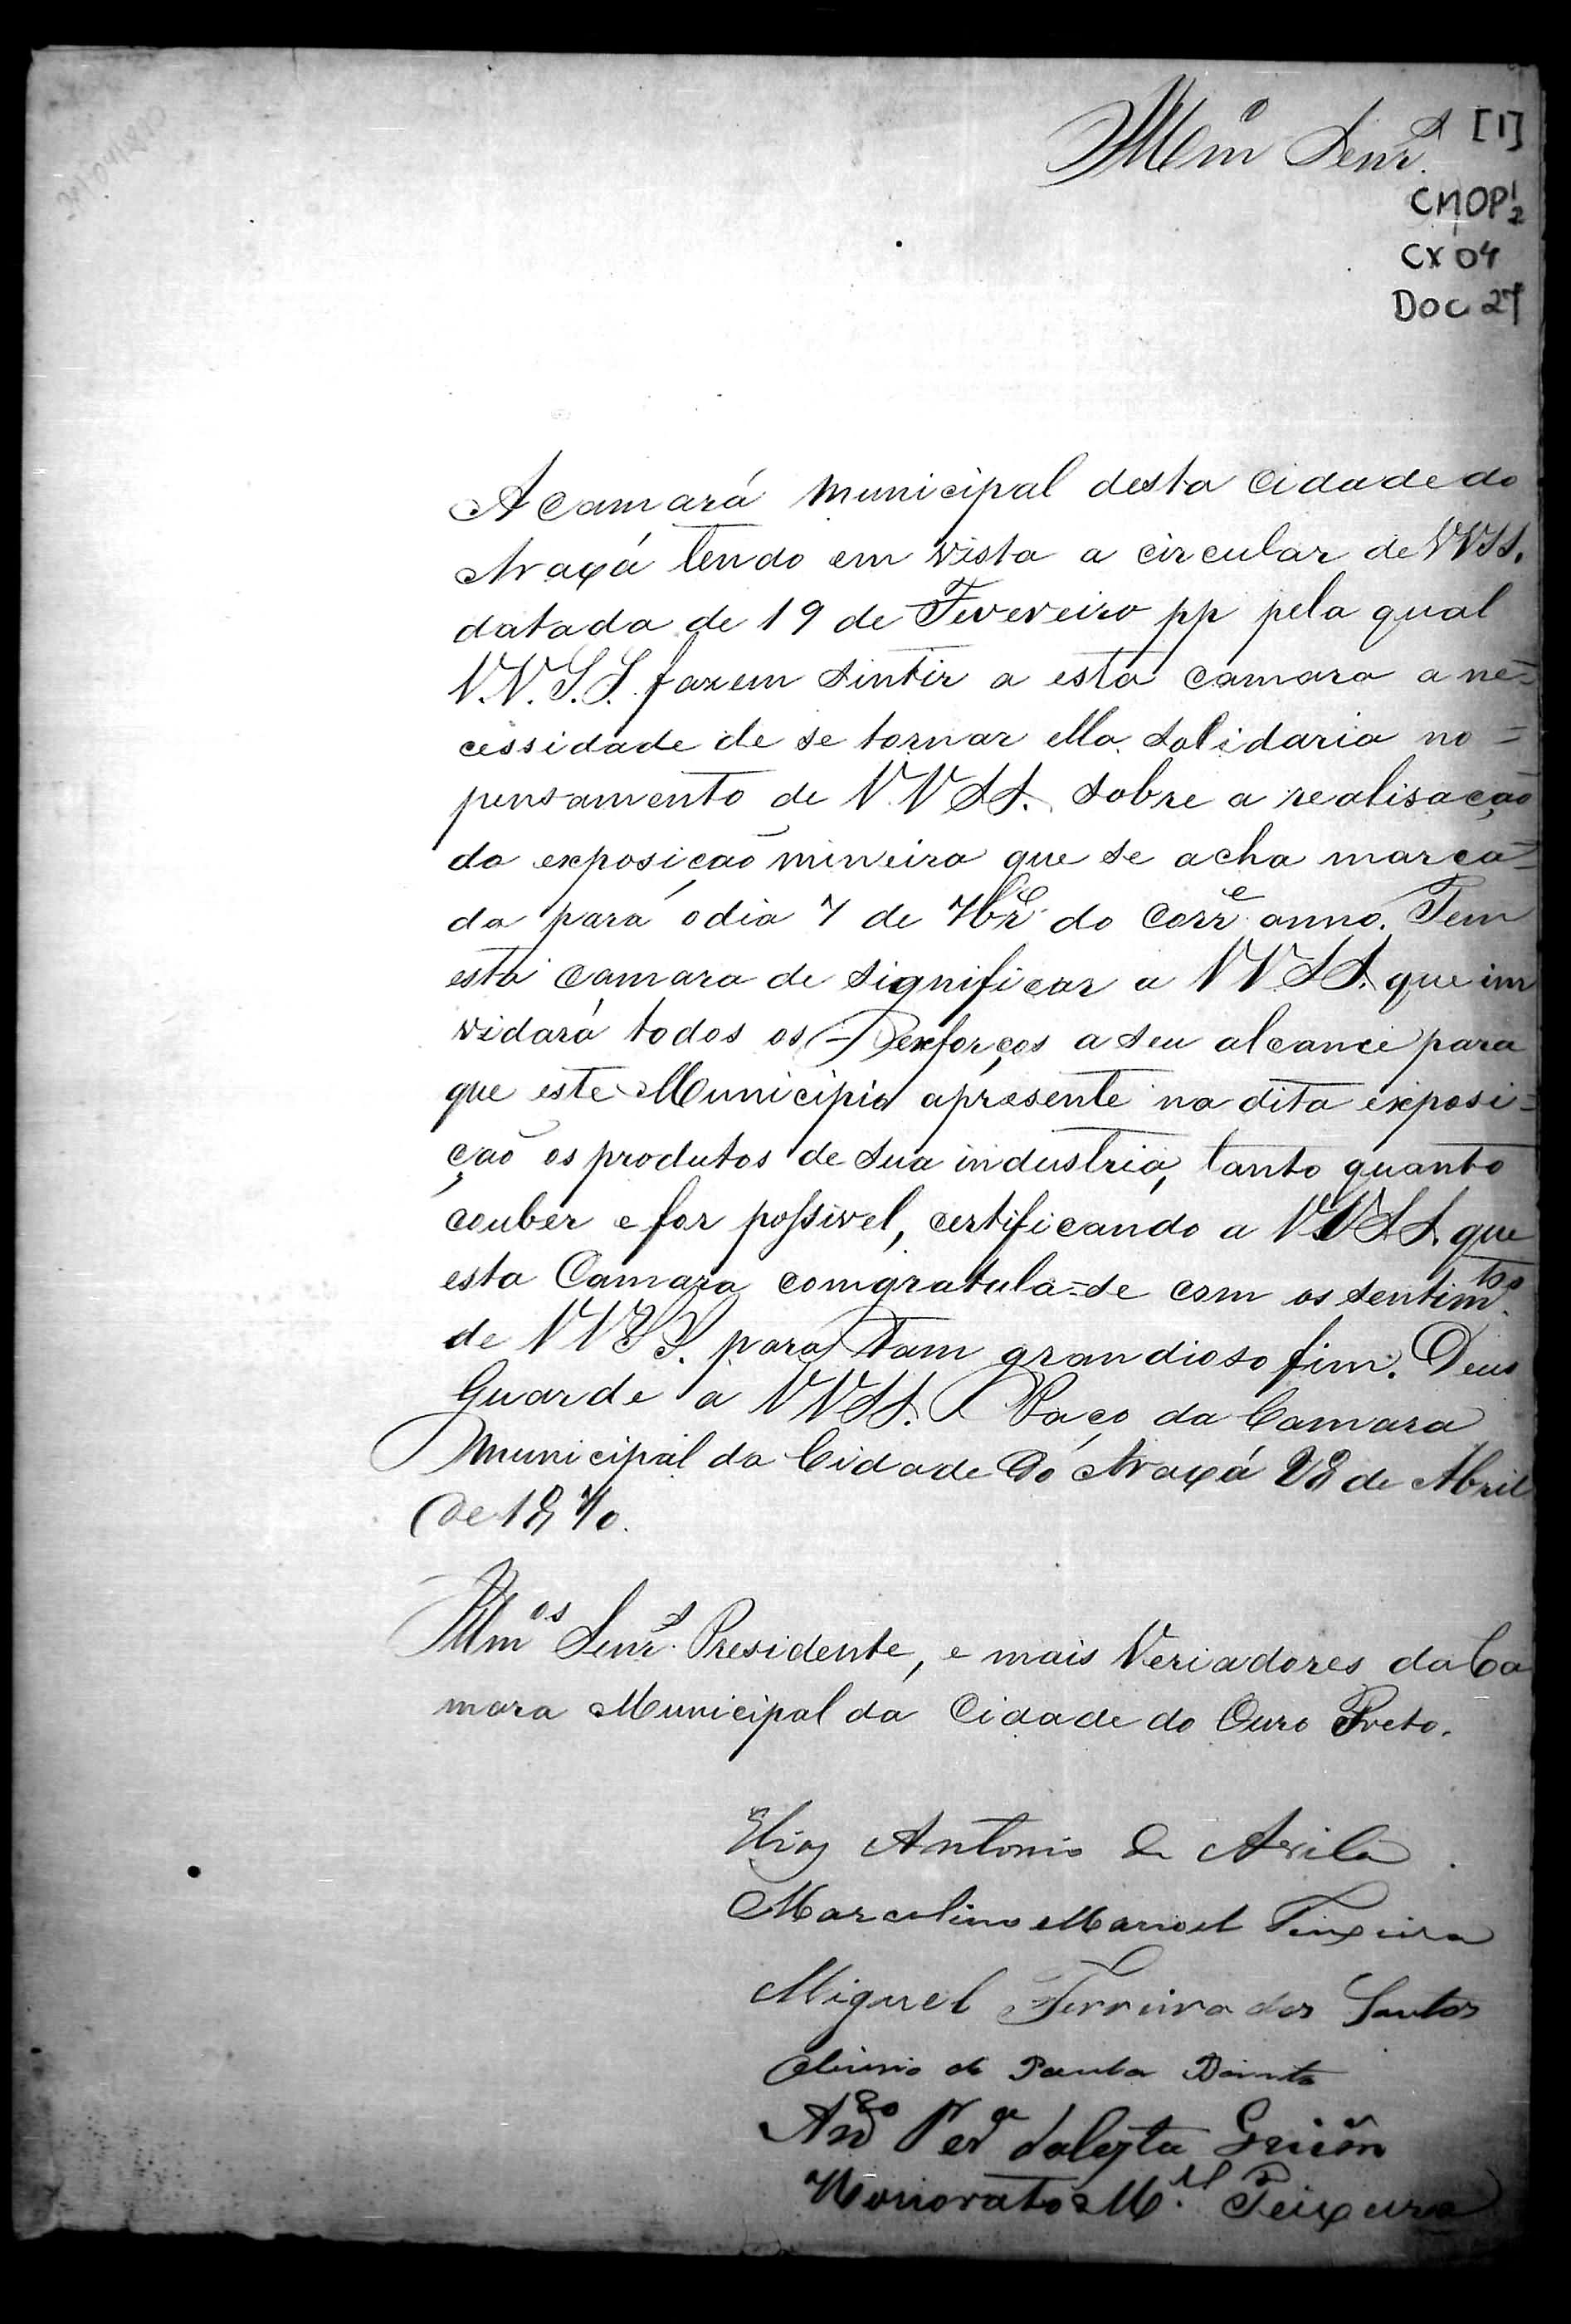 Illm.º Senr.s [1]
CMOP 1/2
CX 04
DOC 27
A Camara Municipal desta Cidade do
Araxá tendo em vista a circular de VVSS.
datada de 19 de Fevereiro pp pela qual
V.V.S.S. fazem sintir a esta camara a ne=
cessidade de se tornar ella solidaria no =
pensamento de V.V.SS. sobre a realisação
da exposição mineira que se acha marca=
da para o dia 7 de 7br.e do corr.e anno. Tem
esta camara de significar a VVSS. que in
vidará todos os exforços a seu alcance para
que este Municipio apresente na dita exposi=
ção os produtos de sua industria, tanto quanto
couber e for possivel, certificando a VVSS. que
esta Camara comgratula=se com os sentim.tos
de VVSS. para tam grandioso fim. Deus
Guarde a VVSS. Paço da Camara
Municipal da Cidade do Araxá 28 de Abril
de 1870.
Illm.os Senr.s Presidente, e mais Veriadores da Ca
mara Municipal da Cidade do Ouro Preto.
Elias Antonio de Avila
Marcelino Manoel Teixeira
Miguel Ferreira dos Santos
de Paula
Per.a
Honorato M.el Teixeira